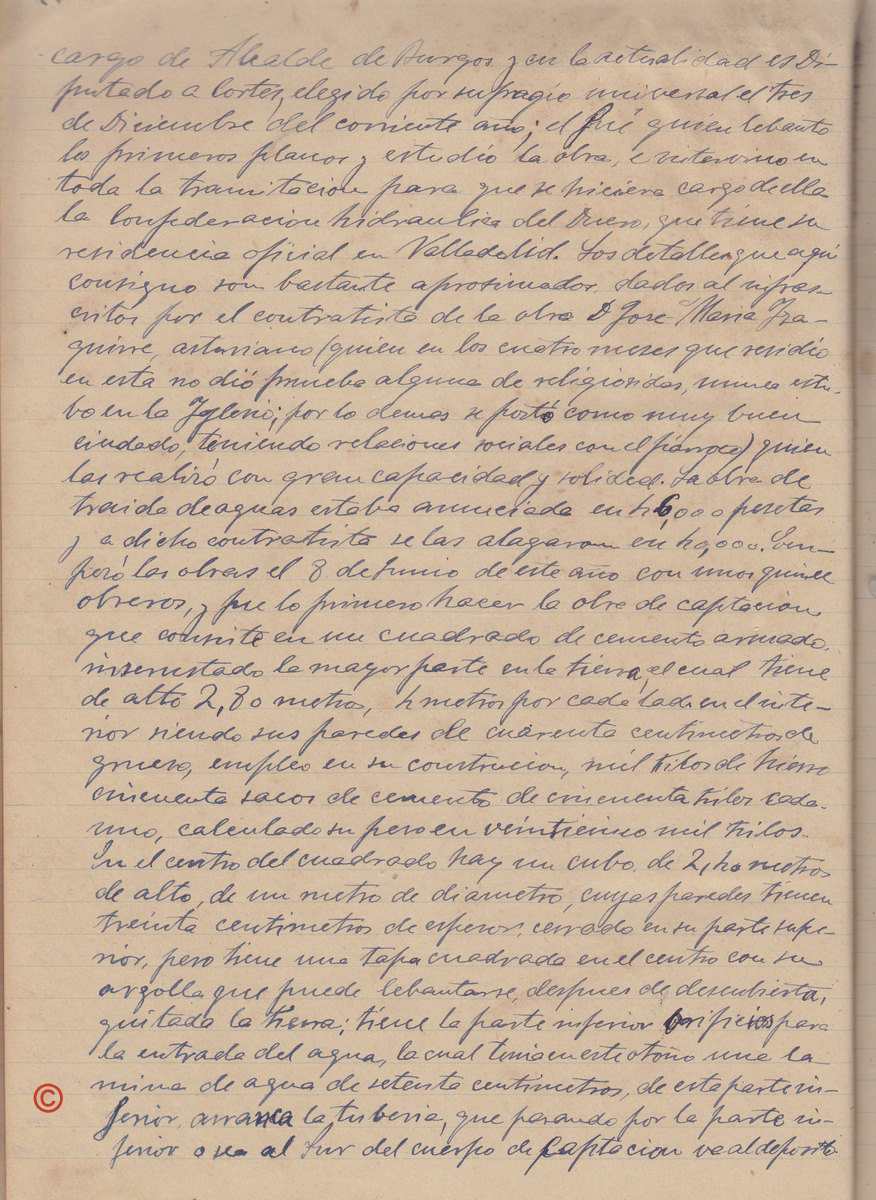 cargo de Alcalde de Burgos y en la actualidad es Di-
putado a Cortes, elegido por sufragio universal el tres
de Diciembre del corriente año; el fué quien lebanto
los primeros planos y estudió la obra, e intervino en
toda la tramitacion para que se hiciera cargo de ella
la Confederacion hidraulica del Duero, que tiene su
residencia oficial en Valladolid. Los detalles que aqui
consigno son bastante aprosimados, dados al infras-
critos por el contratista de la obra D Jose Maria Iza-
guirre, asturiano (quien en los cuatro meses que residio
en esta no dió prueba alguna de religiosidas, nunca estu-
bo en la Iglesia; por lo demas se portó como muy buen
ciudado, teniendo relaciones sociales con el párroco) quien
las realizó con gran capacidad y solided. La obra de
traida de aguas estaba anunciada en 46,000 pesetas
y a dicho contratista se las alagaron en 40,000. Em-
pezó las obras el 8 de Junio de este año con unos quince
obreros, y fue lo primero hacer la obra de captacion
que consiste en un cuadrado de cemento armado,
inscrustado la mayor parte en la tierra, el cual tiene
de alto 2,80 metros, 4 metros por cada lado en el inte-
rior siendo sus paredes de cuarenta centimetros de
grueso, empleo en su construcion, mil kilos de hierro
cincuenta sacos de cemento de cincuenta kilos cada
uno, calculado su peso en veinticinco mil kilos.
En el centro del cuadrado hay un cubo de 2,40 metros
de alto, de un metro de diametro, cuyas paredes tienen
treinta centimetros de espesor, cerrado en su parte supe-
rior, pero tiene una tapa cuadrada en el centro con su
argolla que puede lebantarse, despues de descubierta,
quitada la tierra; tiene la parte inferior orificios para
la entrada del agua, la cual tenia en este otoño una la-
mina de agua de setenta centimetros, de esta parte in-
ferior, arranca la tuberia, que pasando por la parte in-
ferior o sea al Sur del cuerpo de Captacion va al deposito
©